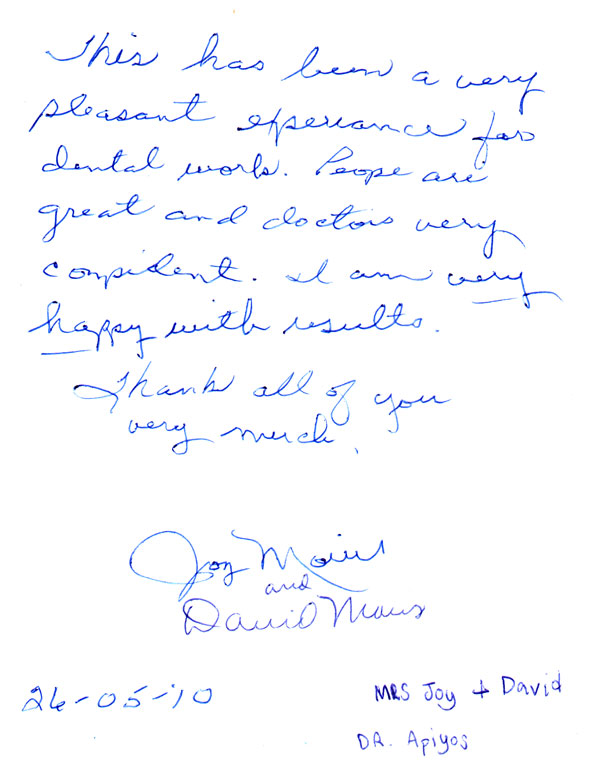 This has been a very
pleasant experiance for
dental work. Peope are
great and doctors very
compident. I am very
happy with results.
Thank all of you
very much.
Joy
and
David
26-05-'10
MRS Joy + David
DR. Apiyos